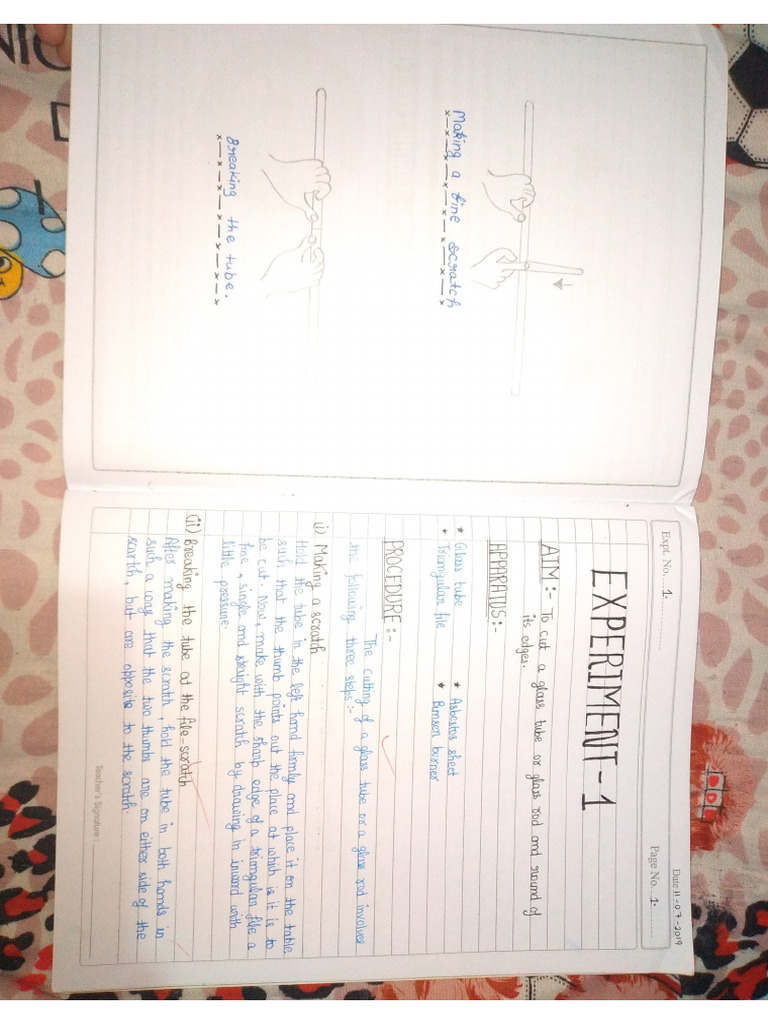 Making a fine scratch
Breaking the tube.
Date 11-07-2019
Expt. No. 1.
Page No. 1.
EXPERIMENT-1
AIM:- To cut a glass tube or glass rod and round of
its edges.
APPARATUS:-
* Glass tube * Asbestos sheet
* Triangular file * Bunsen burner
PROCEDURE:-
The cutting of a glass tube or a glass rod involves
the following three steps:-
i) Making a scratch
Hold the tube in the left hand firmly and place it on the table
such that the thumb points out the place at which is it is to
be cut. Now, make with the sharp edge of a triangular file a
fine, single and straight scratch by drawing in inward with
little pressure.
(ii) Breaking the tube at the file-scratch
After making the scratch, hold the tube in both hands in
such a way that the two thumbs are on either side of the
scartch, but are opposite to the scratch.
Teacher's Signature :